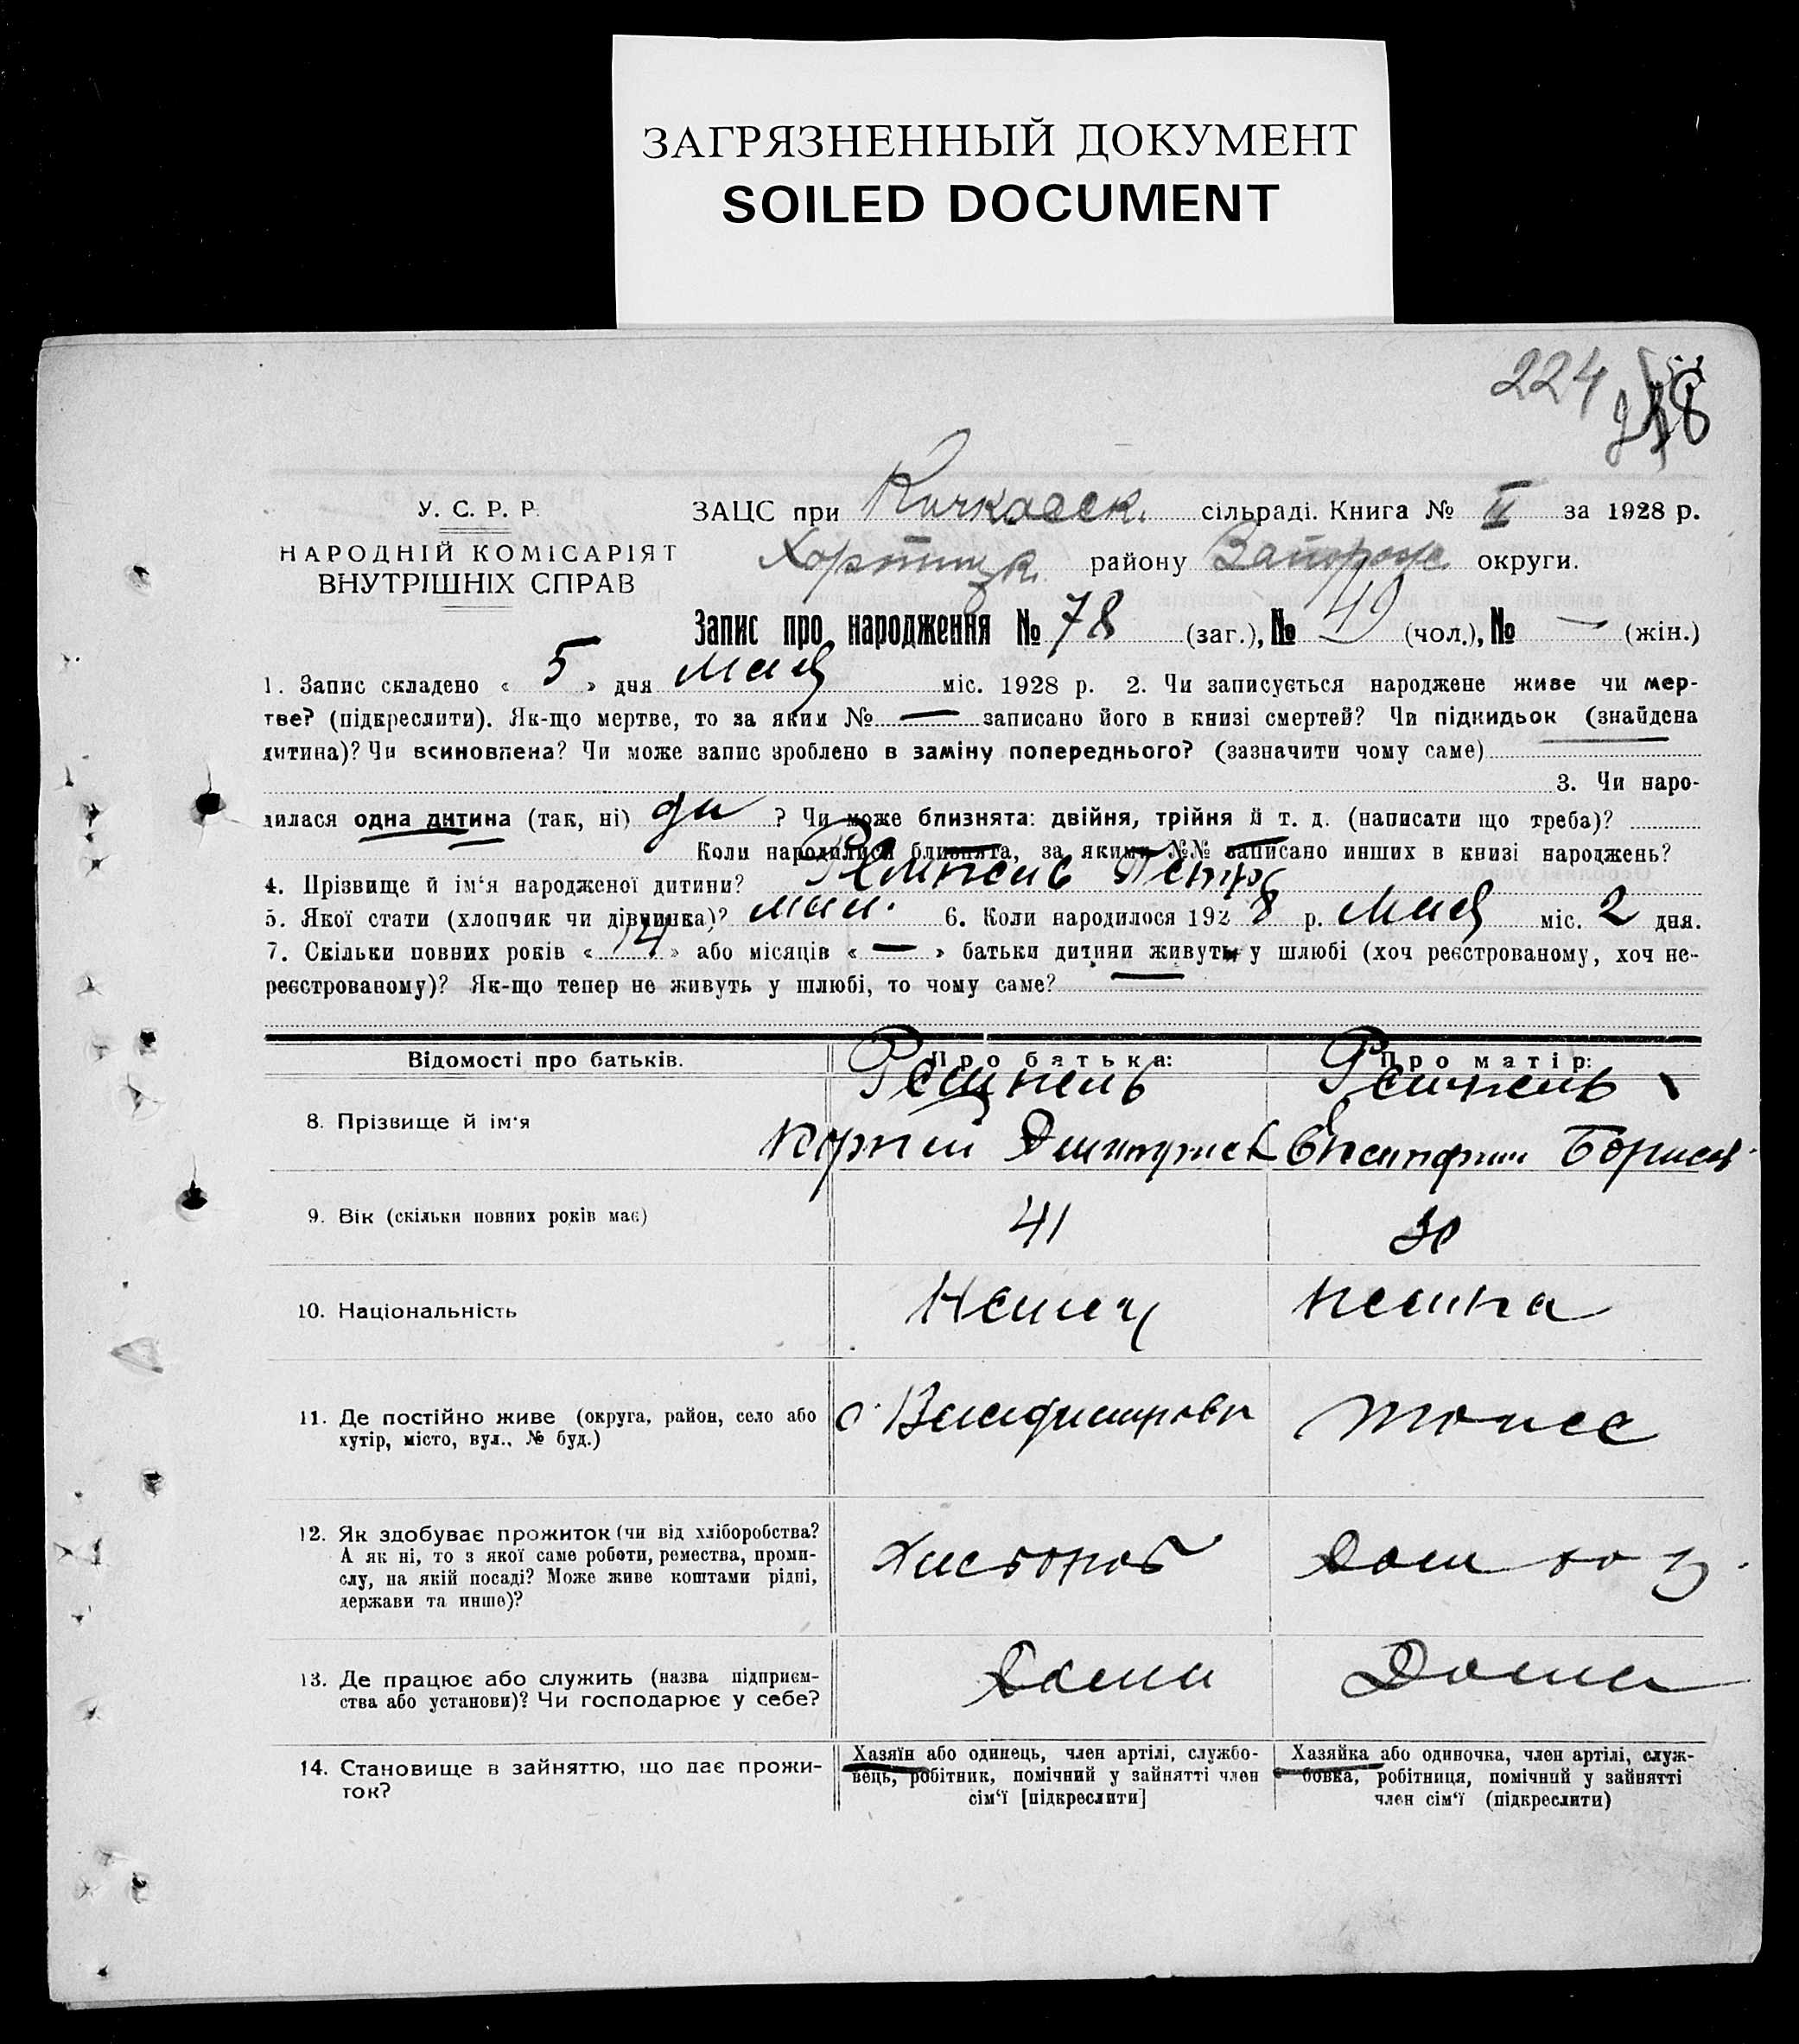 ЗАГРЯЗНЕННЫЙ ДОКУМЕНТ
SOILED DOCUMENT
224
У. С. Р. Р.
НАРОДНІЙ КОМІСАРІЯТ
ВНУТРІШНІХ СПРАВ
ЗАЦС при Кичкасск. сільраді. Книга № II за 1928 р.
Хортицк. району Запорож. округи.
Запис про народження № 78 (заг.), № 40 (чол.), № — (жін.)
1. Запис складено « 5 » дня мая міс. 1928 р. 2. Чи записується народжене живе чи мер-
тве? (підкреслити). Як-що мертве, то за яким № — записано його в книзі смертей? Чи підкидьок (знайдена
дитина)? Чи всиновлена? Чи може запис зроблено в заміну попереднього? (зазначити чому саме)
3. Чи наро-
дилася одна дитина (так, ні) да ? Чи може близнята: двійня, трійня й т. д. (написати що треба)?
Коли народилися близнята, за якими №№ записано инших в книзі народжень?
4. Прізвище й ім‘я народженої дитини? Ремпель Петр
5. Якої стати (хлопчик чи дівчинка)? мал. 6. Коли народилося 1928 р. Мая міс. 2 дня.
7. Скільки повних років « 14 » або місяців « — » батьки дитини живуть у шлюбі (хоч реєстрованому, хоч не-
реєстрованому)? Як-що тепер не живуть у шлюбі, то чому саме? —
Відомості про батьків. Про батька: Про матір:
Ремпель Ремпель
8. Прізвище й ім‘я
Корней Дмитриев Борисов
9. Вік (скільки повних років має) 41 30
10. Національність Немец немка
11. Де постійно живе (округа, район, село або
хутір, місто, вул., № буд.)
с. тоже
12. Як здобуває прожиток (чи від хліборобства?
А як ні, то з якої саме роботи, ремества, проми-
слу, на якій посаді? Може живе коштами рідні,
держави та инше)?
Хлебороб Дом хоз.
13. Де працює або служить (назва підприєм-
ства або установи)? Чи господарює у себе?
Дома Дома
14. Становище в зайняттю, що дає прожи-
ток?
Хазяїн або одинець, член артілі, службо-
вець, робітник, помічний у зайнятті член
сім‘ї [підкреслити]
Хазяйка або одиночка, член артілі, служ-
бовка, робітниця, помічний у зайнятті
член сім‘ї (підкреслити)